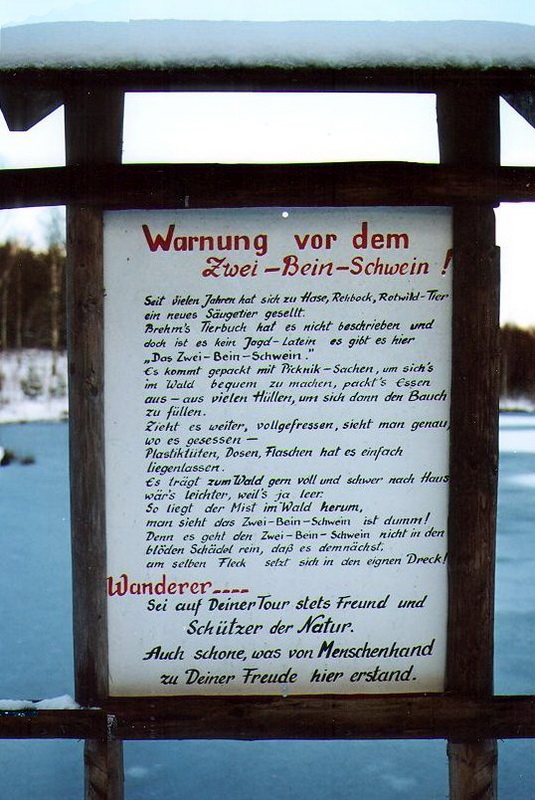 Warnung vor dem
Zwei-Bein-Schwein !
Seit vielen Jahren hat sich zu Hase, Rehbock, Rotwild-Tier
ein neues Säugetier gesellt.
Brehm's Tierbuch hat es nicht beschrieben und
doch ist es kein Jagd-Latein es gibt es hier
„Das Zwei-Bein-Schwein."
Es kommt gepackt mit Picknik-Sachen, um sich's
im Wald bequem zu machen, packt's Essen
aus - aus vielen Hüllen, um sich dann den Bauch
zu füllen.
Zieht es weiter, vollgefressen, sieht man genau,
wo es gesessen —
Plastiktüten, Dosen, Flaschen hat es einfach
liegenlassen.
Es trägt zum Wald gern voll und schwer nach Haus
wär's leichter, weil's ja leer.
So liegt der Mist im Wald herum,
man sieht das Zwei-Bein-Schwein ist dumm!
Denn es geht den Zwei-Bein-Schwein nicht in den
blöden Schädel rein, daß es demnächst,
am selben Fleck setzt sich in den eignen Dreck!
Wanderer----
Sei auf Deiner Tour stets Freund und
Schützer der Natur.
Auch schone, was von Menschenhand
zu Deiner Freude hier erstand.